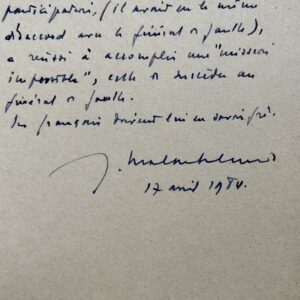 participation, (il avait eu le même
désaccord avec le général de Gaulle),
a réussi à accomplir une "mission
impossible", celle de succéder au
général de Gaulle.
Les français doivent lui en savoir gré.
J.
17 avril 1984.